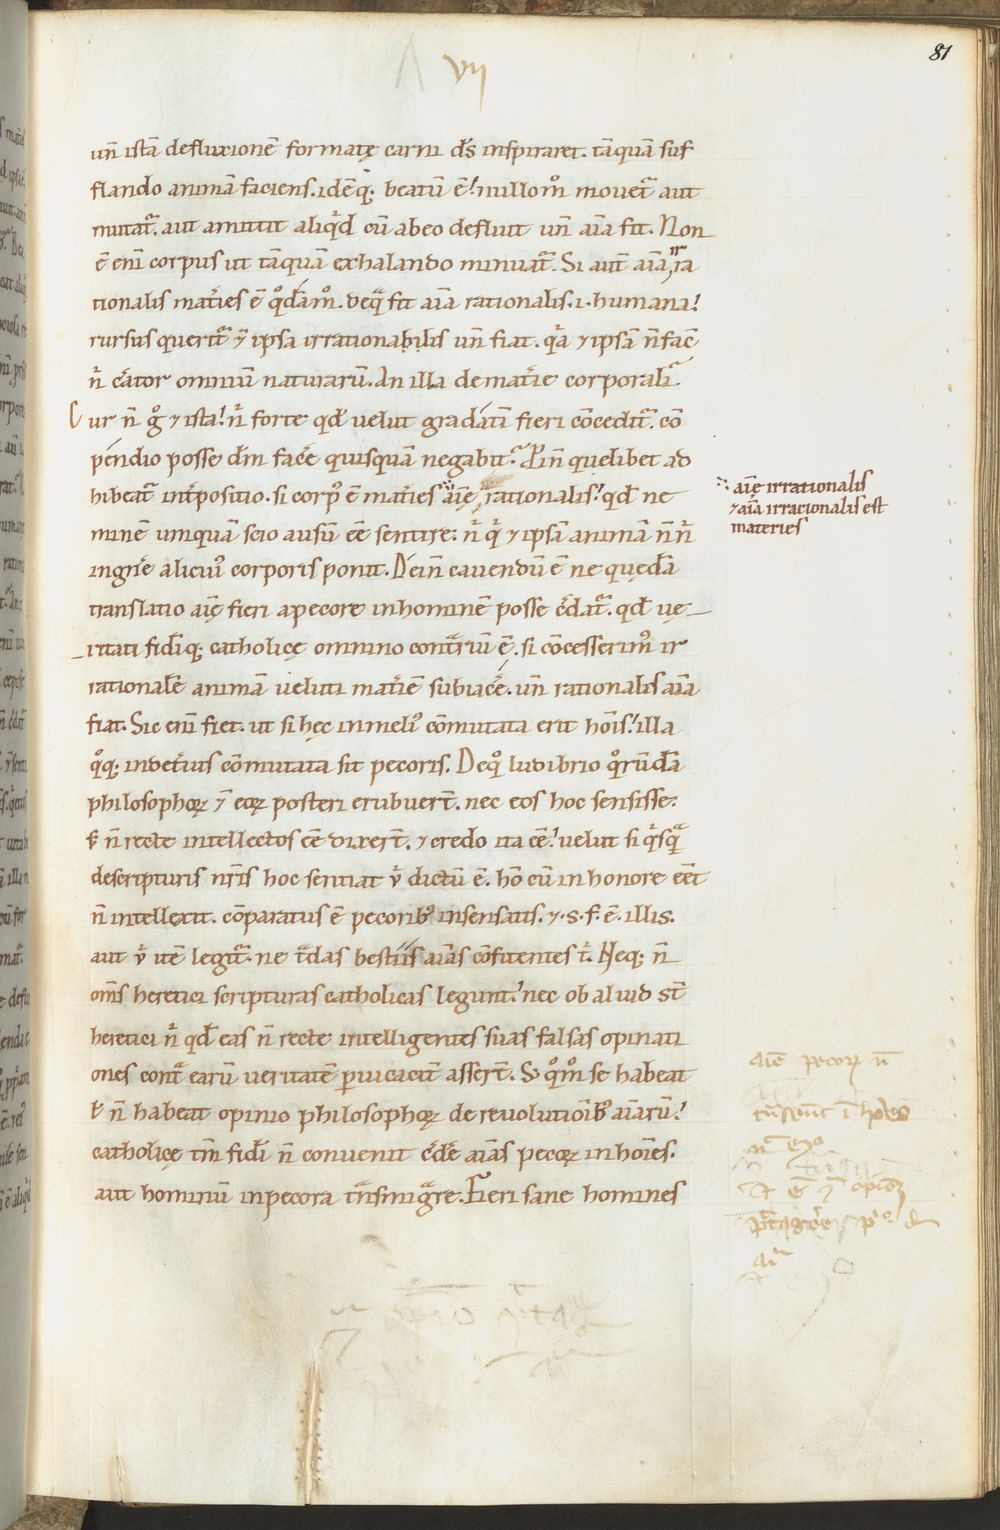 81
vij
uñ istā defluxionē formatę carni d̄s inspiraret. tāquā suf
flando animā faciens. idēq; beatū ē! nullo m̊ movet᷑ aut
mutat᷑. aut amittit aliqͥd cū ab eo defluit uñ aīa fit. Non
ē enī corpus ut tāquā exhalando minuat᷑. Si aut̄ aīa irra
tionalis mat̄ies ē q̊dā m̊. de qᷓ fit aīa rationalis .i. humana!
rursus querit᷑ ⁊ ipsa irrationabilis uñ fiat. qͥa ⁊ ipsā n̄ fac̄
nͥ c̄ator omniū naturarū. An illa de mat̄ie corporali?
Cur n̄ g̊ ⁊ ista! nͥ forte qd̄ velut gradāti fieri cōcedit᷑. cō
pendio posse dm̄ fac̄e quisquā negabit? Proin̄ quelibet ad
hibeat᷑ int̄positio. si corpꝰ ē mat̄ies aīę rationalis! qd̄ ne
minē umquā scio ausū eē sentire: nͥ qͥ ⁊ ipsā animā n̄ nͥ
in genē alicuiꝰ corporis ponit. Dein̄ cavendū ē ne quędā
translatio aīę fieri a pecore in hominē posse c̄dat᷑. qd̄ ve
ritati fideiq; catholicę omnino cont᷑riū ē. si cōcesserimꝰ ir
rationalē animā veluti mat̄iē subiac̄e. uñ rationalis aīa
fiat. Sic enī fiet. ut si hęc in meliꝰ cōmutata erit hōis! illa
q̊q; in det̄ius cōmutata sit pecoris. De q̊ ludibrio q̊rūdā
philosophoꝝ ⁊ eoꝝ posteri erubuer̄t. nec eos hoc sensisse.
s̄ n̄ recte intellectos eē dixer̄t. ⁊ credo ita eē! velut si qͥsqᷓ
de scripturis nr̄is hoc sentiat vͥ dictū ē. hō cū in honore eēt
n̄ intellexit. cōparatus ē pecoribꝰ insensatis. ⁊ .s. f. ē. illis.
aut vͥ itē legit᷑. ne t᷑das bestiis aīas cōfitentes tͥ. Neq; n̄
om̄s heretici scripturas catholicas legunt! nec ob aliud st̄
heretici nͥ qd̄ eas n̄ recte intelligentes suas falsas opinati
ones contᷓ earū veritatē pervicacit̄ asser̄t. S; q̊m̊ se habeat
vͥ n̄ habeat opinio philosophoꝝ de revolutiōibꝰ aīarū!
catholicę tm̄ fidei n̄ convenit c̄dēe aīas pecoꝝ in hōies.
aut hominū in pecora trᷓnsmigrᷓre. Fieri sane homines
aīę irrationalis
⁊ aīa irracionalis est
materies